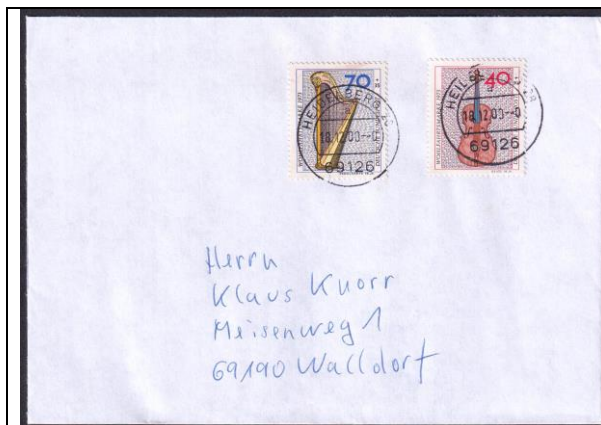 70
HEIDELBERG
18.12.00
69126
40
18.12.00
69126
Herrn
Klaus Knorr
Meisenweg 1
69190 Walldorf